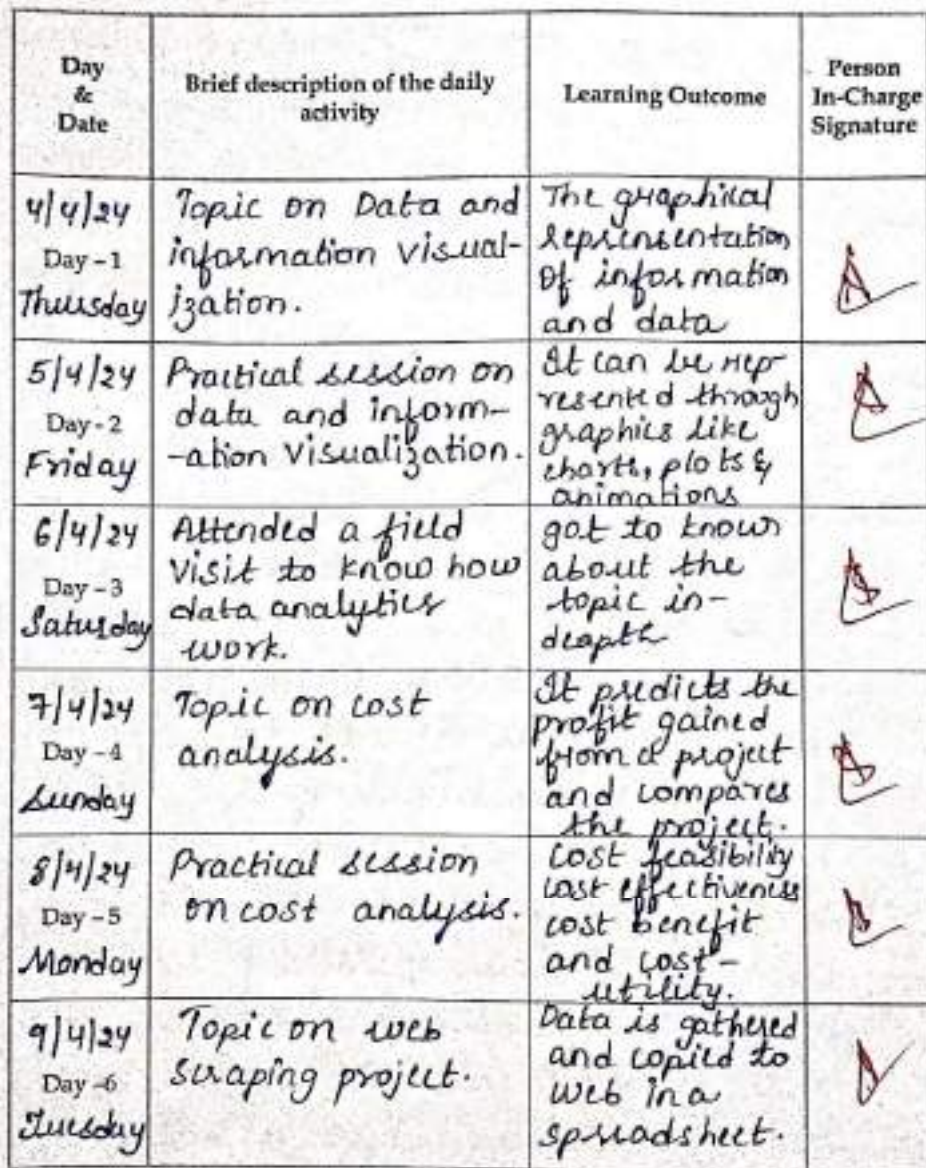 Day
&
Date
Brief description of the daily
activity
Learning Outcome
Person
In-Charge
Signature
4/4/24
Day - 1
Thursday
Topic on Data and
information visual-
ization.
The graphical
reprensentation
of information
and data
5/4/24
Day - 2
Friday
Practical session on
data and inform-
-ation visualization.
It can be rep
resented through
graphics like
charts, plots &
animations
6/4/24
Day - 3
Saturday
Attended a field
visit to know how
data analytics
work.
got to know
about the
topic in-
deapth
7/4/24
Day - 4
Sunday
Topic on cost
analysis.
It predicts the
profit gained
from a project
and compares
the project.
8/4/24
Day - 5
Monday
Practical session
on cost analysis.
cost feasibility
cost effectiveness
cost benefit
and cost-
utility.
9/4/24
Day -6
Tuesday
Topic on web
scraping project.
Data is gathered
and copied to
web in a
spreadsheet.